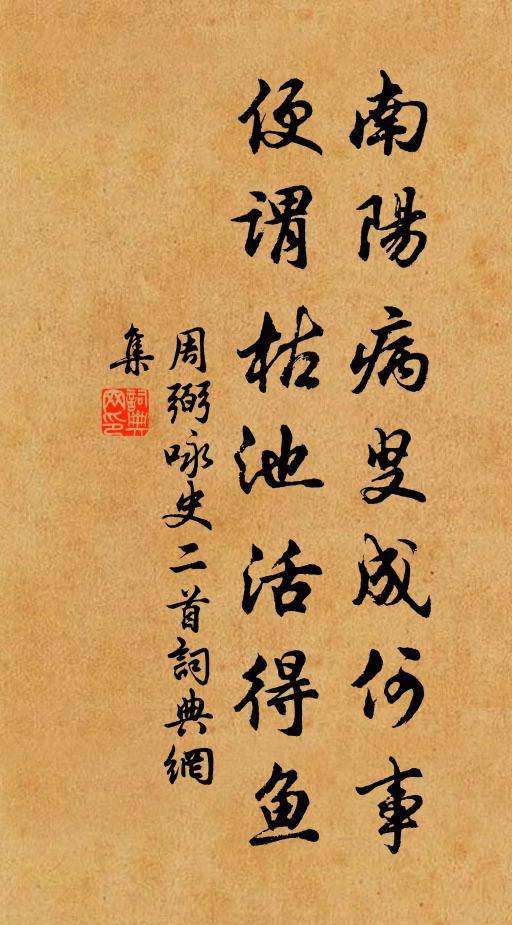 南陽病叟成何事
便謂枯池活得鱼
周弼咏史二首詞典網
集
詞典
网印